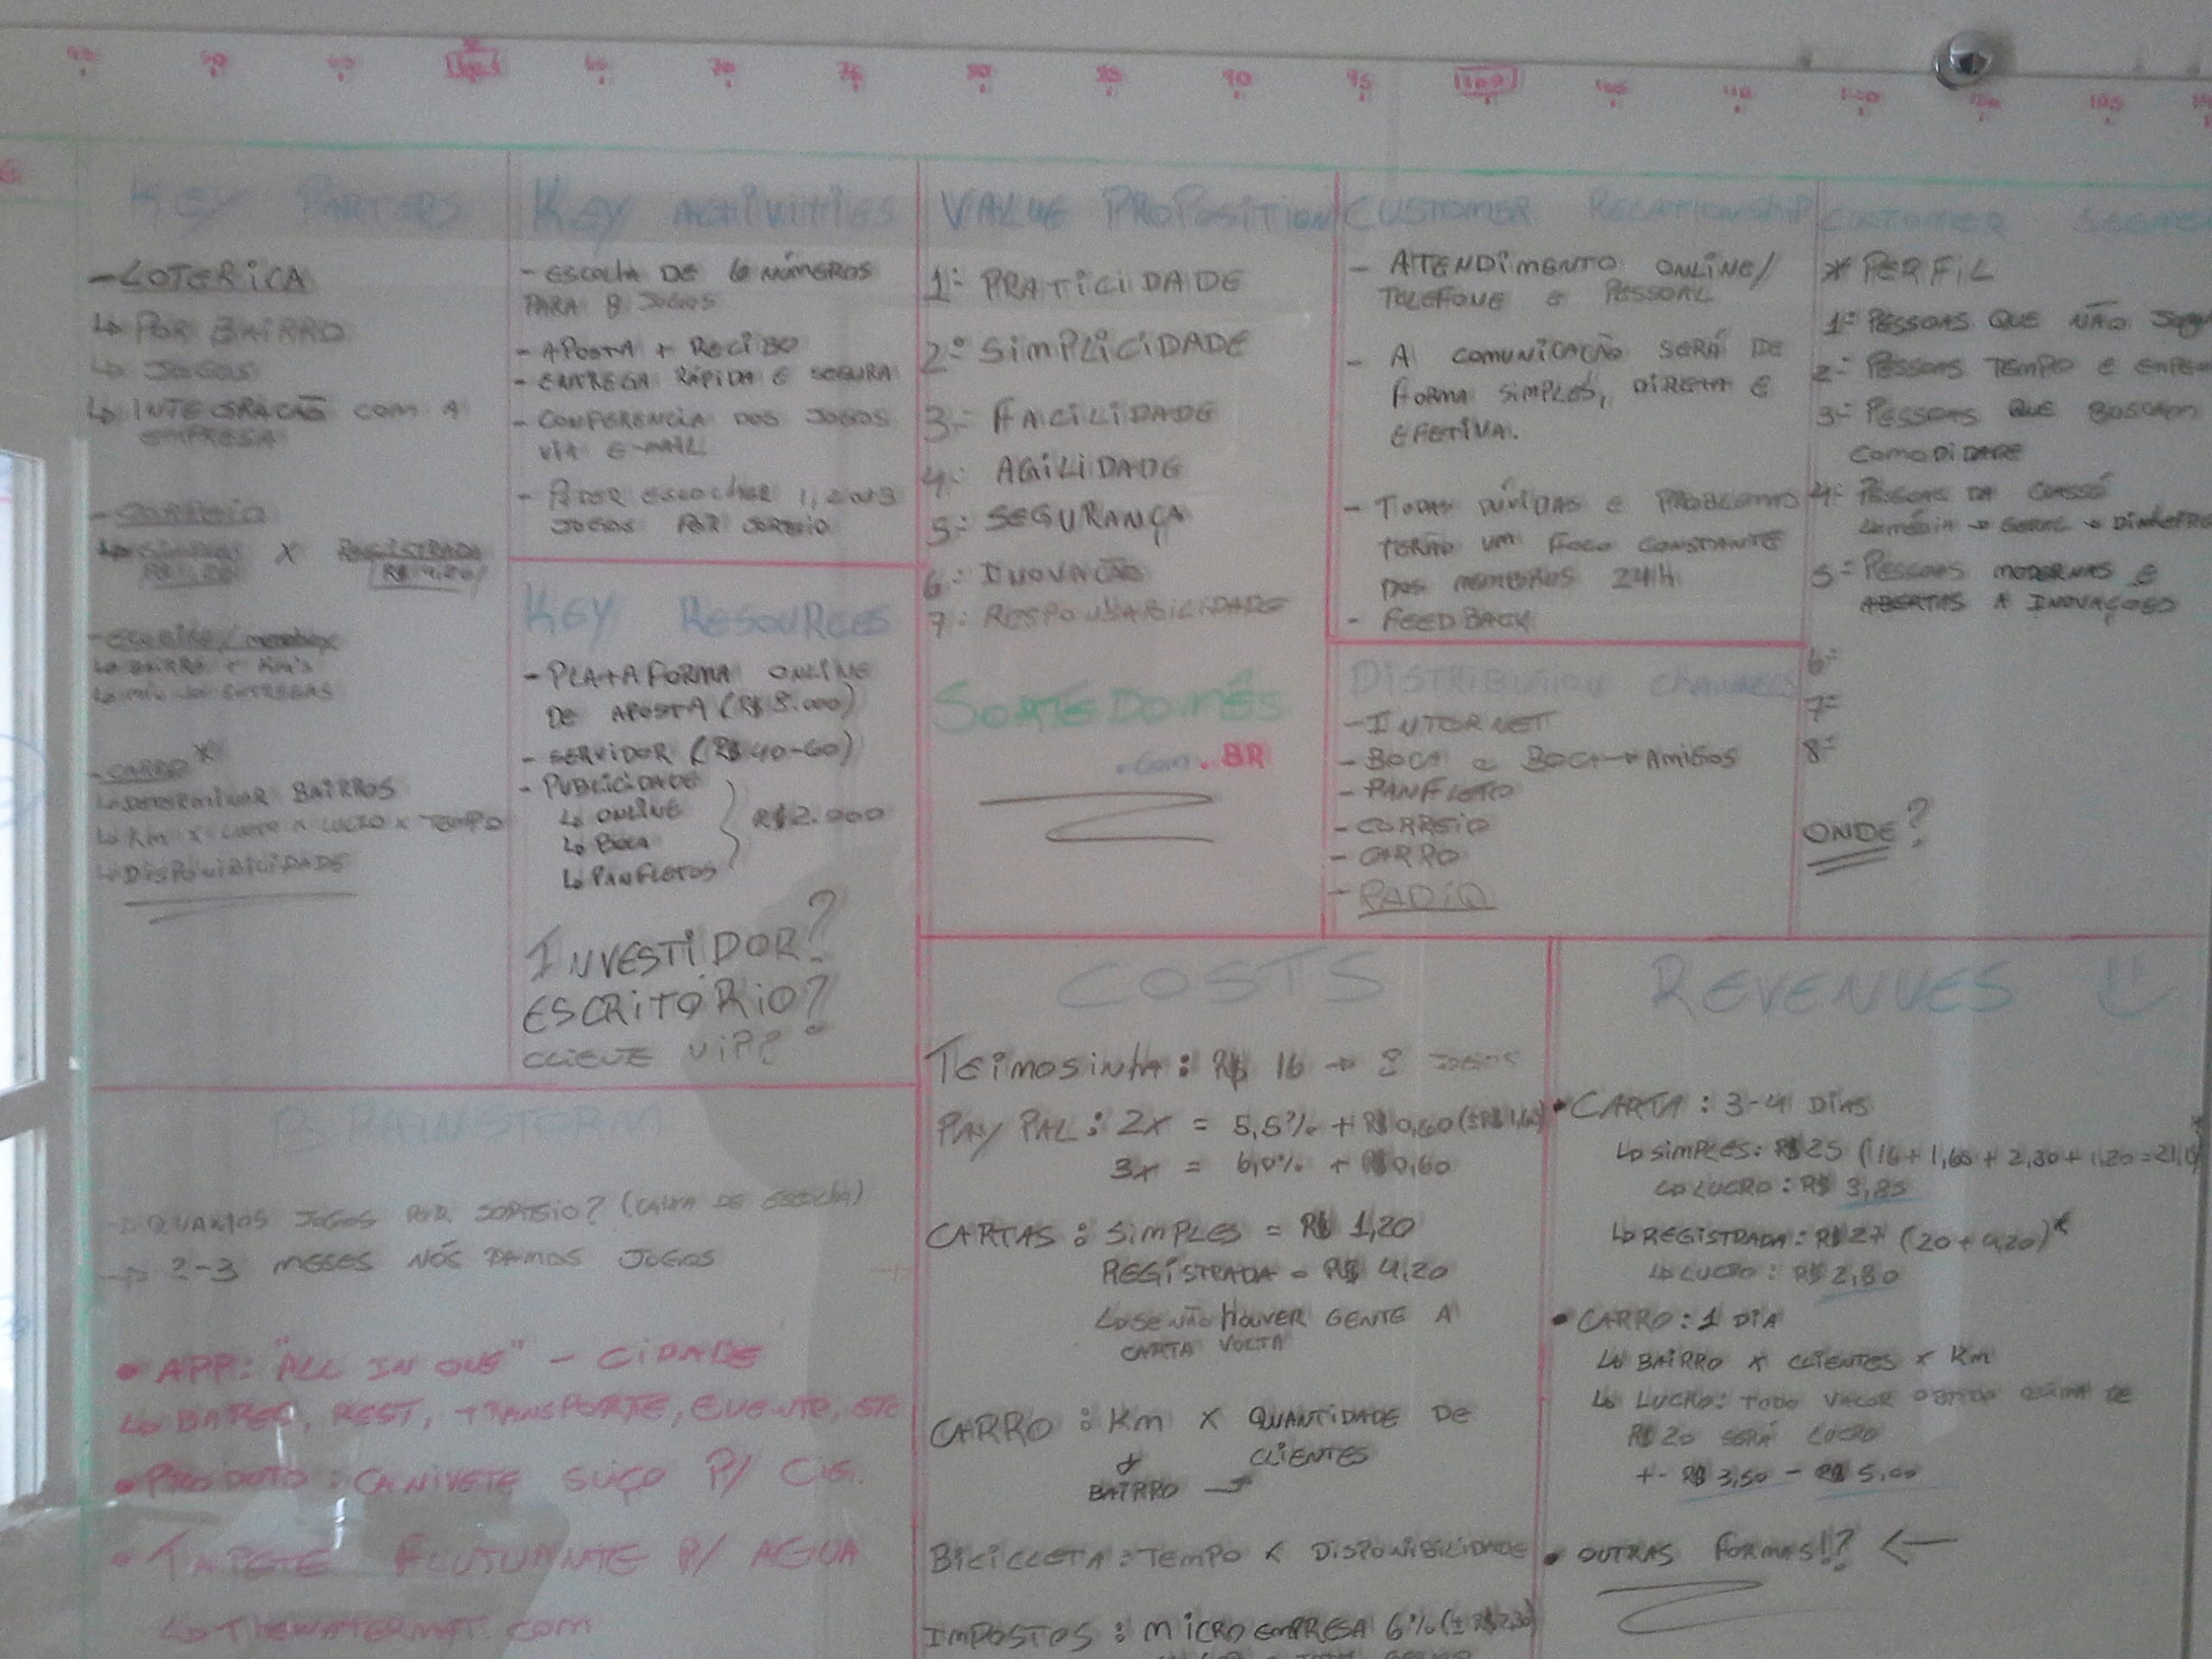 KEY PARTERS
- LOTERICA
↳ POR BAIRRO
↳ JOGOS
↳ INTEGRAÇÃO COM A
EMPRESA
- CORREIO
X REGISTRADA
R$ 1,20 R$ 4,20
↳ BAIRRO + Km's
↳ ENTREGAS
- CARRO *
↳ DETERMINAR BAIRROS
↳ Km x x LUCRO x TEMPO
↳ DISPONIBILIDADE
KEY ACTIVITIES
- ESCOLHA DE 6 NÚMEROS
PARA 8 JOGOS
- APOSTA + RECIBO
- ENTREGA RÁPIDA E SEGURA
- CONFERENCIA DOS JOGOS
VIA E-MAIL
- PODER ESCOLHER 1, 2 OU 3
JOGOS POR SORTEIO
KEY RESOURCES
- PLATAFORMA ONLINE
DE APOSTA (R$ 8.000)
- SERVIDOR (R$ 40-60)
- PUBLICIDADE
↳ ONLINE
↳ BOCA
↳ PANFLETOS
R$ 2.000
INVESTIDOR?
ESCRITÓRIO?
CLIENTE VIP?
VALUE PROPOSITION
1- PRATICIDADE
2- SIMPLICIDADE
3- FACILIDADE
4- AGILIDADE
5- SEGURANÇA
6- INOVAÇÃO
7- RESPONSABILIDADE
SORTE DO MÊS
.COM.BR
CUSTOMER RELATIONSHIP
- ATENDIMENTO ONLINE/
TELEFONE E PESSOAL
- A COMUNICAÇÃO SERÁ DE
FORMA SIMPLES, DIRETA E
EFETIVA.
- TODAS DÚVIDAS E PROBLEMAS
TERÃO UM FOCO CONSTANTE
DOS MEMBROS 24H.
- FEEDBACK
DISTRIBUTION CHANNELS
- INTERNET
- BOCA a BOCA → AMIGOS
- PANFLETO
- CORREIO
- CARRO
- RADIO
CUSTOMER SEGME
* PERFIL
1- PESSOAS QUE NÃO
2- PESSOAS TEMPO E
3- PESSOAS QUE BUSCAM
COMODIDADE
4- PESSOAS DA CLASSE
→ GERAL → DINHEIRO
5- PESSOAS MODERNAS E
ABERTAS A INOVAÇÕES
6-
7-
8-
ONDE?
BRAINSTORM
→ QUANTOS JOGOS POR SORTEIO? (CAIXA DE ESCOLHA)
→ 2-3 MESES NÓS DAMOS JOGOS
• APP: "ALL IN ONE" - CIDADE
↳ REST, TRANSPORTE, EVENTO, ETC
• PRODUTO: CANIVETE SUIÇO P/ CIG.
• TAPETE FLUTUANTE P/ AGUA
↳ THEWATERMAT.COM
COSTS
TEIMOSINHA: R$ 16 → 8 JOGOS
PAY PAL: 2X = 5,5% + R$ 0,60 (± R$ 1,60)
3x = 6,0% + R$ 0,60
CARTAS: SIMPLES = R$ 1,20
REGISTRADA = R$ 4,20
↳ SE NÃO HOUVER GENTE A
CARTA VOLTA
CARRO: Km X QUANTIDADE DE
CLIENTES
BAIRRO →
BICICLETA: TEMPO x DISPONIBILIDADE
IMPOSTOS: MICRO EMPRESA 6% (± R$ 2,30)
REVENUES
• CARTA: 3-4 DIAS
↳ SIMPLES: R$ 25 (16 + 1,65 + 2,30 + 1,20 = 21,15)
↳ LUCRO: R$ 3,85
↳ REGISTRADA: R$ 27 (20 + 4,20) *
↳ LUCRO: R$ 2,80
• CARRO: 1 DIA
↳ BAIRRO x CLIENTES x Km
↳ LUCRO: TODO VALOR OBTIDO ACIMA DE
R$ 20 SERÁ LUCRO
+- R$ 3,50 - R$ 5,00
• OUTRAS FORMAS!? ←